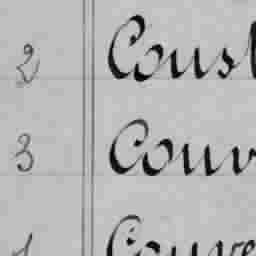 2 Const
3 Couv
Couve